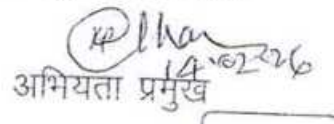 14.02.26
अभियता प्रमुख